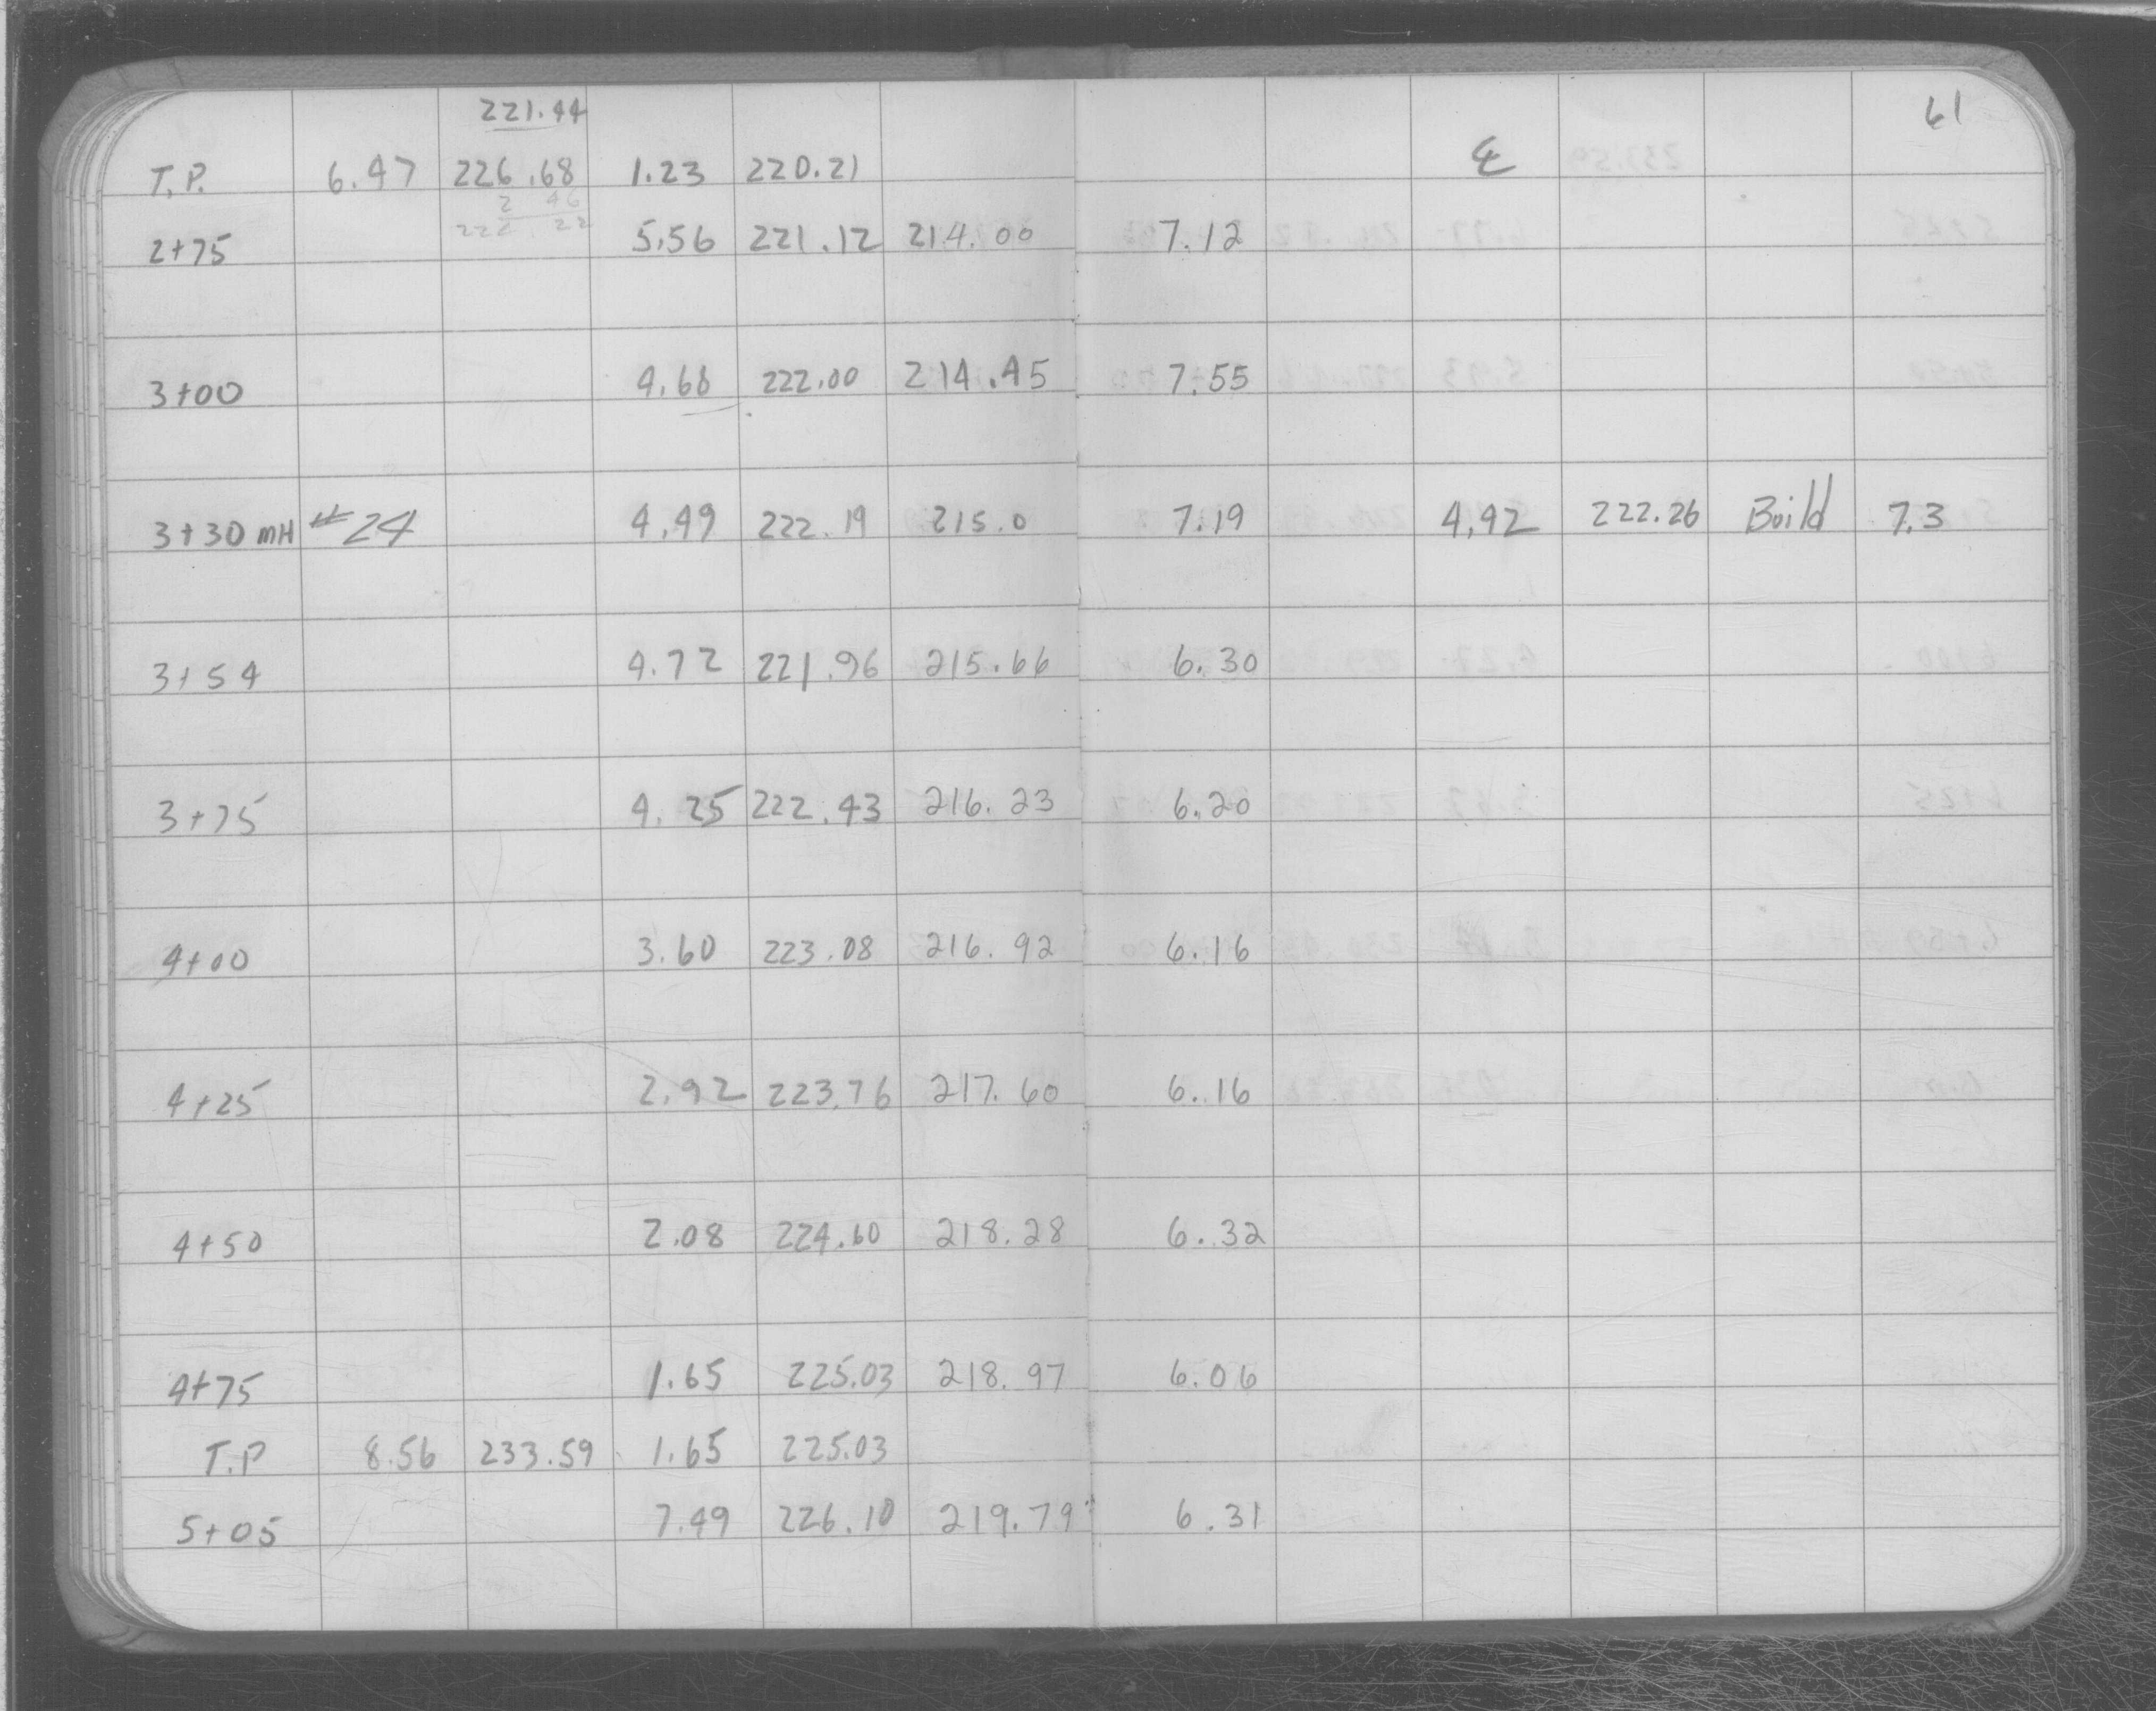 221.44 61
T.P. 6.47 226.68 1.23 220.21 ℄
2 46
222.22
2+75 5.56 221.12 214.00 7.12
3+00 4.68 222.00 214.45 7.55
3+30 MH #24 4.49 222.19 215.0 7.19 4.42 222.26 Build 7.3
3+54 4.72 221.96 215.66 6.30
3+75 4.25 222.43 216.23 6.20
4+00 3.60 223.08 216.92 6.16
4+25 2.92 223.76 217.60 6.16
4+50 2.08 224.60 218.28 6.32
4+75 1.65 225.03 218.97 6.06
T.P 8.56 233.59 1.65 225.03
5+05 7.49 226.10 219.79 6.31